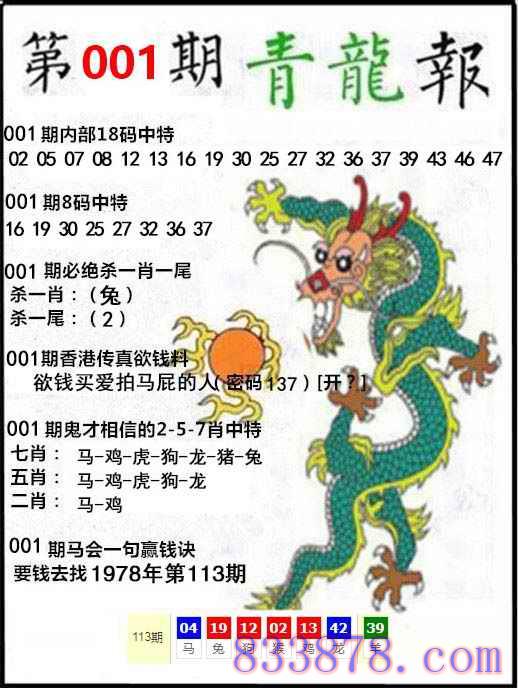 第001期青龍報
001期内部18码中特
02 05 07 08 12 13 16 19 30 25 27 32 36 37 39 43 46 47
001期8码中特
16 19 30 25 27 32 36 37
001期必绝杀一肖一尾
杀一肖：（兔）
杀一尾：（2）
001期香港传真欲钱料
欲钱买爱拍马屁的人（密码137）[开？]
001期鬼才相信的2-5-7肖中特
七肖： 马-鸡-虎-狗-龙-猪-兔
五肖： 马-鸡-虎-狗-龙
二肖： 马-鸡
001期马会一句赢钱诀
要钱去找1978年第113期
113期 04 19 12 02 13 42 39
马 兔 狗 猴 鸡 龙 羊
833878.com